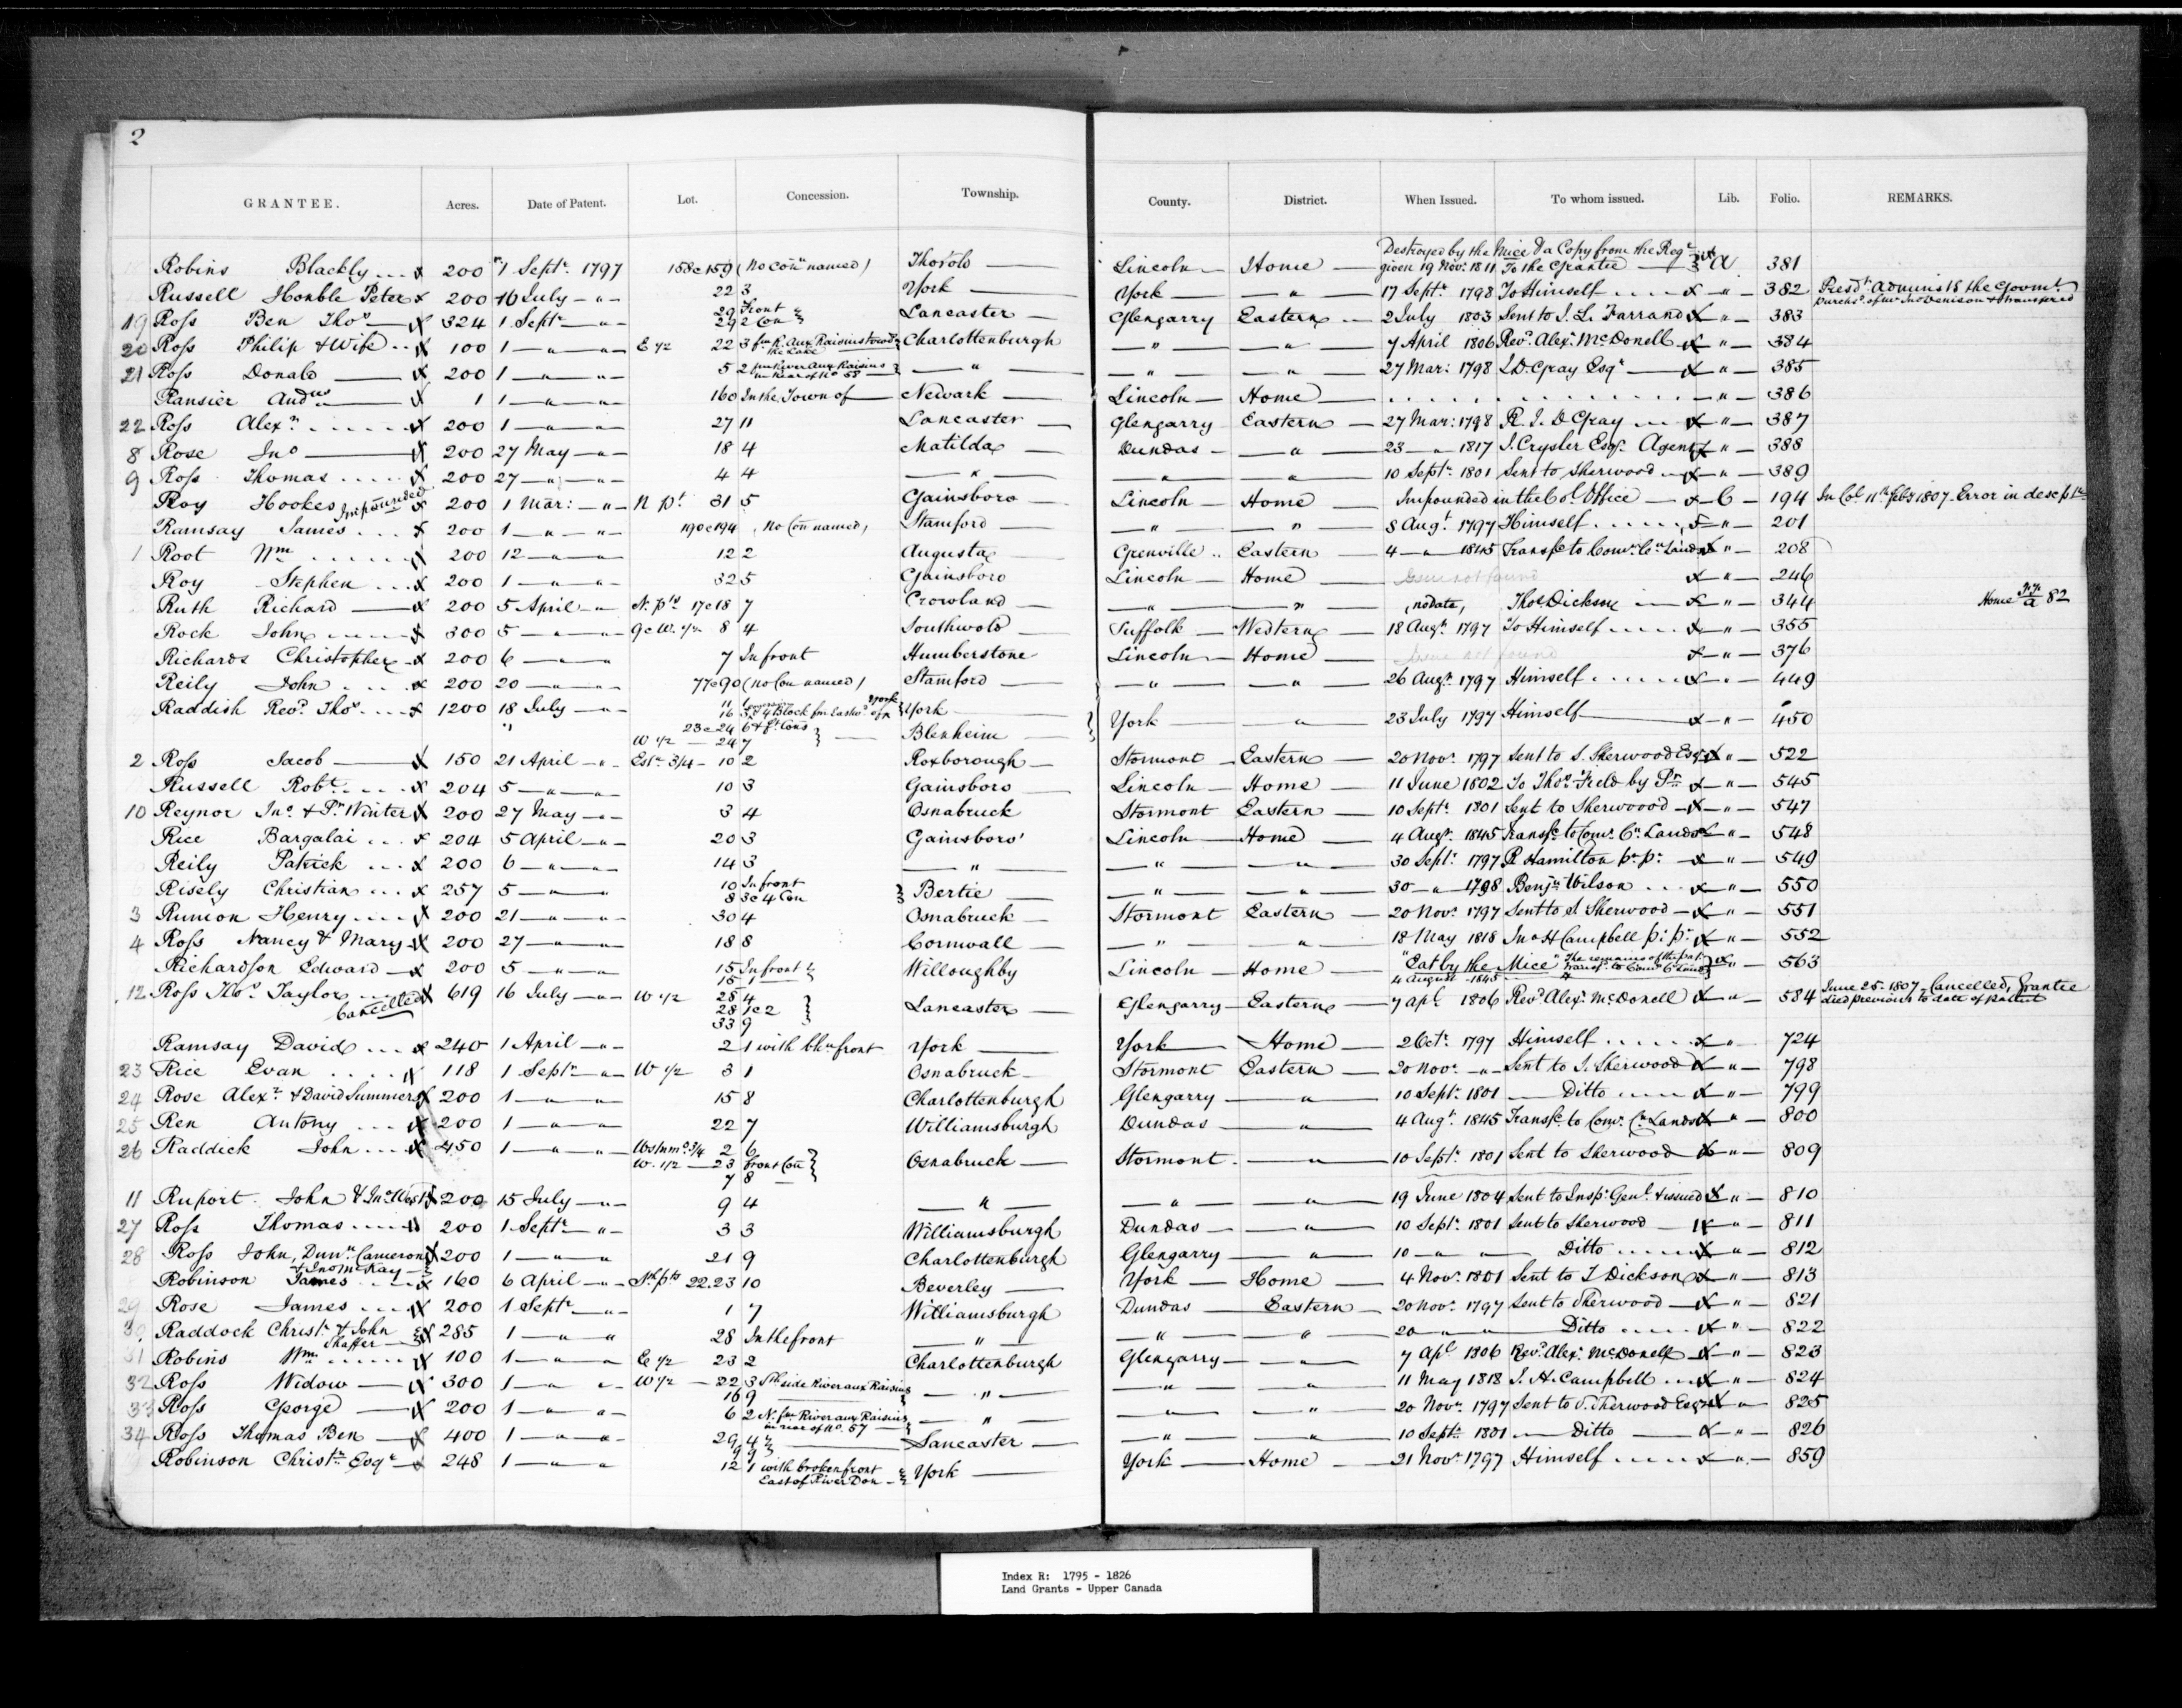 2
GRANTEE. Acres. Date of Patent. Lot. Concession. Township. County. District. When Issued. To whom issued. Lib. Folio. REMARKS.
Destroyed by the Mice & a Copy from the Regr
Robins Blackly ... x 200 1 Septr. 1797 158 & 159 (no Con named) Thorold Lincoln Home given 19 Novr. 1811 To the Grantee A 381
Russell Honble Peter x 200 16 July " 22 3 York York " 17 Septr. 1798 To Himself .... x " 382 Presdt. Administg the Govmt.
19 Ross Ben Thos x 324 1 Septr " 29 Front 29 2 Con } Lancaster Glengarry Eastern 2 July 1803 Sent to J. L. Farrand x " 383
20 Ross Philip & Wife .. x 100 1 " " E 1/2 22 3 fm R. Aux Raisins towds the Lake Charlottenburgh " " 7 April 1806 Revd. Alexr. McDonell x " 384
21 Ross Donald x 200 1 " " 5 2 in Rear of No 58 } " " " 27 Mar: 1798 D. Gray Esqr x " 385
Ransier Andus x 1 1 " " 160 In the Town of Newark Lincoln Home ..... " 386
22 Ross Alexr ..... x 200 1 " " 27 11 Lancaster Glengarry Eastern 27 Mar: 1798 R. I. D Gray ... x " 387
8 Rose Jno x 200 27 May " 18 4 Matilda Dundas " 23 " 1817 J. Crysler Esqr. Agent x " 388
9 Ross Thomas ..... x 200 27 " " 4 4 " " " 10 Septr. 1801 Sent to Sherwood x " 389
Roy Hookes Impounded x 200 1 Mar: " N pt. 31 5 Gainsboro Lincoln Home Impounded in the Col Office x C 194 In Col 11th Feby 1807 - Error in descptn
Ramsay James ... x 200 1 " " 190 & 194 (no Con named) Stamford " " 8 Augt. 1797 Himself ..... " 201
1 Root Wm ..... x 200 12 " " 12 2 Augusta Grenville .. Eastern 4 " 1845 Transfd to Comr. Cn. Lands x " 208
Roy Stephen ... x 200 1 " " 32 5 Gainsboro Lincoln Home Issue not found x " 246
Ruth Richard x 200 5 April " N. pts 17 & 18 7 Crowland " " (no date) Thos Dickson x " 344 Home 82
Rock John ..... x 300 5 " " 9 & W. 1/2 8 4 Southwold Suffolk Western 18 Augt. 1797 To Himself .... x " 355
Richards Christopher x 200 6 " " 7 In front Humberstone Lincoln Home Issue not found x " 376
Reily John .... x 200 20 " " 77 & 90 (no Con named) Stamford " " 26 Augt. 1797 Himself ...... x " 449
Raddish Revd. Thos ... x 1200 18 July " 11 York York " 23 July 1797 Himself x " 450
23 & 24 6 & 7 Cons W 1/2 24 7 } Blenheim
2 Ross Jacob x 150 21 April " Est. 3/4 10 2 Roxborough Stormont Eastern 20 Novr. 1797 Sent to S. Sherwood Esqr x " 522
Russell Robt ..... x 204 5 " " 10 3 Gainsboro Lincoln Home 11 June 1802 To Thos Field by x " 545
10 Reynor Jno. & Pr. Winter x 200 27 May " 3 4 Osnabruck Stormont Eastern 10 Septr. 1801 Sent to Sherwood x " 547
Rice Bargalai ... x 204 5 April " 20 3 Gainsboro' Lincoln Home 4 Augt. 1845 Transfd. to Comr. Cn Lands x " 548
Reily Patrick ... x 200 6 " " 14 3 " " " 30 Septr. 1797 R Hamilton pr. pr. x " 549
Risely Christian ... x 257 5 " " 10 In front 8 3 & 4 Con } Bertie " " 30 " 1798 Benjn Wilson ... x " 550
3 Runion Henry .... x 200 21 " " 30 4 Osnabruck Stormont Eastern 20 Novr. 1797 Sent to S Sherwood x " 551
4 Ross Nancy & Mary x 200 27 " " 18 8 Cornwall " " 18 May 1818 Jno H Campbell pr: pr: x " 552
Richardson Edward x 200 5 " " 15 In front 15 1 Willoughby Lincoln Home "Eat by the Mice" The remains of the pat. Transfd. to Comr Cn Lands 4 August 1845 x " 563
12 Ross Thos. Taylor Cancelled x 619 16 July " W 1/2 28 4 28 1 & 2 33 9 } Lancaster Glengarry Eastern 7 Apl 1806 Revd. Alexr. McDonell x " 584 June 25. 1807 - Cancelled, Grantee died previous to date of Patent
Ramsay David ... x 240 1 April " 2 1 with bkn front York York Home 2 Octr. 1797 Himself ...... x " 724
23 Rice Evan ..... x 118 1 Septr " W 1/2 3 1 Osnabruck Stormont Eastern 20 Novr. " Sent to S. Sherwood x " 798
24 Rose Alexr. & David Summers x 200 1 " " 15 8 Charlottenburgh Glengarry " 10 Septr. 1801 Ditto ..... x " 799
25 Ren Antony ... x 200 1 " " 22 7 Williamsburgh Dundas " 4 Augt. 1845 Transfd. to Comr. Cn Lands x " 800
26 Raddick John .... x 450 1 " " 3/4 2 6 W. 1/2 23 front Con 7 8 } Osnabruck Stormont " 10 Septr. 1801 Sent to Sherwood x " 809
11 Ruport John & Jno. West x 200 15 July " 9 4 " " " 19 June 1804 Sent to Inspr Genl. & issued x " 810
27 Ross Thomas ..... x 200 1 Septr " 3 3 Williamsburgh Dundas " 10 Septr. 1801 Sent to Sherwood x " 811
28 Ross John, Dunn. Cameron & Jno McKay x 200 1 " " 21 9 Charlottenburgh Glengarry " 10 " " Ditto ..... x " 812
Robinson James ..... x 160 6 April " N pts 22.23 10 Beverley York Home 4 Novr. 1801 Sent to T Dickson x " 813
29 Rose James .... x 200 1 Septr " 1 7 Williamsburgh Dundas Eastern 20 Novr. 1797 Sent to Sherwood x " 821
30 Raddock Christr. & John Shaffer x 285 1 " " 28 In the front " " " 20 " " Ditto ..... x " 822
31 Robins Wm ...... x 100 1 " " E 1/2 23 2 Charlottenburgh Glengarry " 7 Apl 1806 Revd. Alexr. McDonell x " 823
32 Ross Widow x 300 1 " " W 1/2 22 3 Sth side River aux Raisins 16 9 " " " 11 May 1818 J. H. Campbell ... x " 824
33 Ross George x 200 1 " " 6 2 N. fm River aux Raisins in rear of No. 57 " " " 20 Novr. 1797 Sent to S. Sherwood Esqr x " 825
34 Ross Thomas Ben x 400 1 " " 29 4 9 9 } Lancaster " " 10 Septr. 1801 Ditto x " 826
Robinson Christr. Esqr x 248 1 " " 12 1 with broken front East of River Don York York Home 21 Novr. 1797 Himself ..... x " 859
Index R: 1795 - 1826
Land Grants - Upper Canada